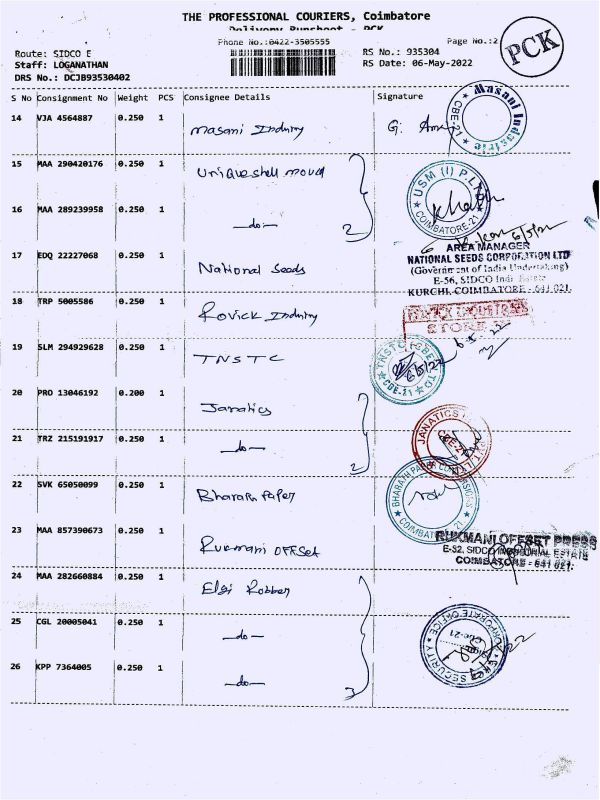 THE PROFESSIONAL COURIERS, Coimbatore
Delivery Runsheet - PCK
Phone No.:0422-3505555
Page No.:2
PCK
Route: SIDCO E
RS No.: 935304
Staff: LOGANATHAN
RS Date: 06-May-2022
DRS No.: DCJB93530402
S No Consignment No Weight PCS Consignee Details Signature
14 VJA 4564887 0.250 1 Masani Industry G.
Masani Industrie CBE-21
15 MAA 290420176 0.250 1 Uniqueshell mould
USM (I) P.LTD COIMBATORE-21
16 MAA 289239958 0.250 1 -do- 2
6/5/22
17 EDQ 22227068 0.250 1 National Seeds
AREA MANAGER
NATIONAL SEEDS CORPORATION LTD
(Government of India Undertaking)
E-56, SIDCO Indl Estate
KURCHI, COIMBATORE - 641 021.
18 TRP 5005586 0.250 1 Rovick Industry
STORE
19 SLM 294929628 0.250 1 TNSTC
TNSTC (CBE) LTD CBE-21
6/5/22
6-5-22
20 PRO 13046192 0.200 1 Janatics
21 TRZ 215191917 0.250 1 -do- 2
JANATICS CBE-21
22 SVK 65050099 0.250 1 Bharath Paper
BHARATH PAPER CONVERSIONS COIMBATORE-21
23 MAA 857390673 0.250 1 Rukmani Offset
RUKMANI OFFSET PRESS
E-52, SIDCO INDUSTRIAL ESTATE
COIMBATORE - 641 021.
24 MAA 282660884 0.250 1 Elgi Rubber
25 CGL 20005041 0.250 1 -do-
CORPORATE OFFICE SECURITY Cbe-21
26 KPP 7364005 0.250 1 -do- 3